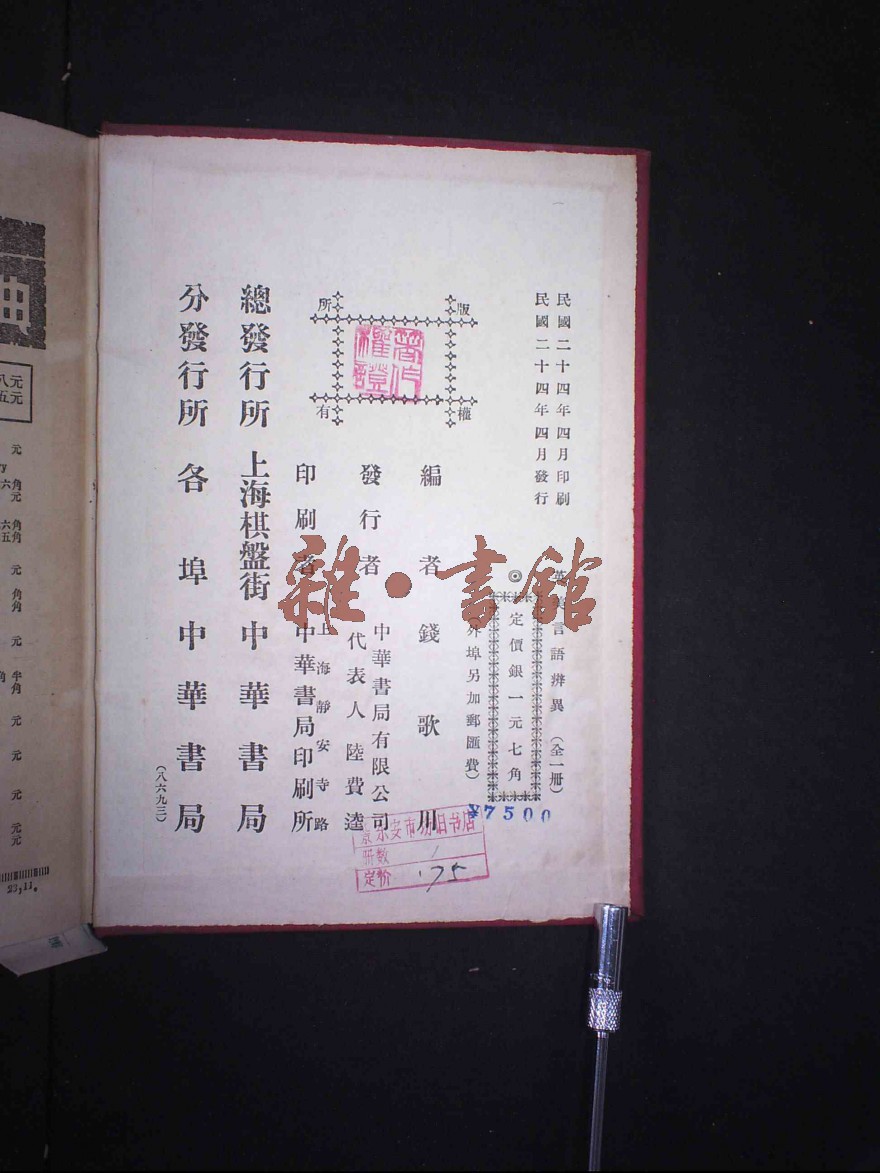 民國二十四年四月印刷
民國二十四年四月發行
英 言語辨異（全一冊）
◎定價銀一元七角
（外埠另加郵匯費）
¥7500
版權所有
編者 錢歌川
發行者 中華書局有限公司
代表人陸費逵
印刷者 上海靜安寺路
中華書局印刷所
總發行所 上海棋盤街 中華書局
分發行所 各埠中華書局
（八六九三）
安市 旧书店
册数 1
定价 .75
雜·書館
典
八元
五元
元
六角
元
六角
五角
元
角
角
元
半
角
元
元
元
元
元
23,11.